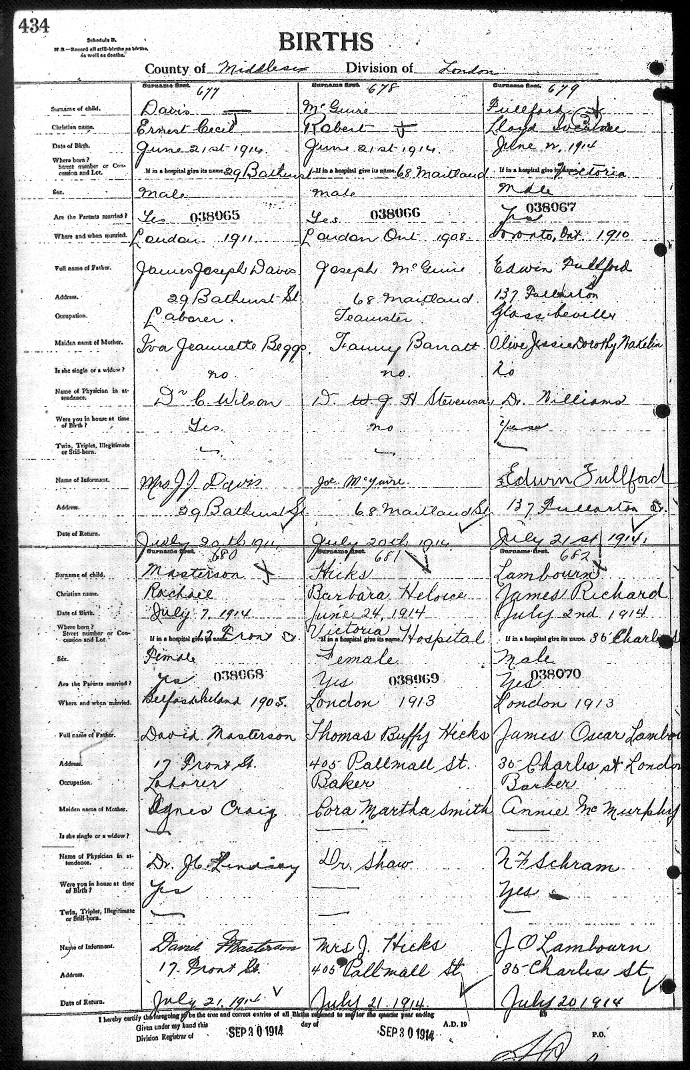 434
Schedule B.
N.B.—Record all still-births as births, as well as deaths.
BIRTHS
County of Middlesex Division of London
Surname first. 677 Surname first. 678 Surname first. 679
Surname of child. Davis McGuire Fullford
Christian name. Ernest Cecil Robert Lloyd
Date of Birth. June 21st 1914. June 21st 1914. June 1914
Where born? Street number or Concession and Lot. If in a hospital give its name 29 Bathurst If in a hospital give its name. 68 Maitland If in a hospital give its name. Victoria
Sex. male male Male
Are the Parents married? Yes 038065 Yes. 038066 Yes 038067
Where and when married. London 1911. London Ont 1908. Toronto, Ont 1910
Full name of Father. James Joseph Davis Joseph McGuire Edwin Fullford
Address. 29 Bathurst St. 68 Maitland. 137 Fullarton
Occupation. Laborer. Teamster Glass beveller
Maiden name of Mother. Iva Jeannette Beggs. Fanny Barratt Olive Jessie Dorothy Wakelin
Is she single or a widow? no no. No
Name of Physician in attendance. Dr C. Wilson Dr W J H Stevenson Dr. Williams
Were you in house at time of Birth? Yes. no
Twin, Triplet, Illegitimate or Still-born.
Name of Informant. Mrs J J Davis Joe McGuire Edwin Fullford
Address. 29 Bathurst St. 68 Maitland St 137 Fullarton St.
Date of Return. July 20th 1911, July 20th 1914 July 21st 1914,
Surname first. 680 Surname first. 681 Surname first. 682
Surname of child. Masterson Hicks Lambourn
Christian name. Rachael Barbara Heloise James Richard
Date of Birth. July 7, 1914 June 24, 1914 July 2nd 1914
Where born? Street number or Concession and Lot. If in a hospital give its name. 17 Front St If in a hospital give its name. Victoria Hospital If in a hospital give its name. 35 Charles
Sex. Female Female Male
Are the Parents married? Yes 038068 Yes 038069 Yes 038070
Where and when married. Belfast Ireland 1905. London 1913 London 1913
Full name of Father. David Masterson Thomas Buffy Hicks James Oscar Lambou
Address. 17 Front St. 405 Pallmall St. 35 Charles st London
Occupation. Laborer Baker Barber
Maiden name of Mother. Agnes Craig Cora Martha Smith Annie McMurphy
Is she single or a widow?
Name of Physician in attendance. Dr. J.C. Lindsay Dr. Shaw N F Schram
Were you in house at time of Birth? Yes Yes
Twin, Triplet, Illegitimate or Still-born.
Name of Informant. David Masterson Mrs J. Hicks J O Lambourn
Address. 17. Front St. 405 Pallmall St, 35 Charles St
Date of Return. July 21, 1914. July 21. 1914. July 20 1914
I hereby certify the foregoing to be the true and correct entries of all Births returned to me for the quarter year ending 19
Given under my hand this SEP 30 1914 day of SEP 30 1914 A.D. 19
Division Registrar of P.O.